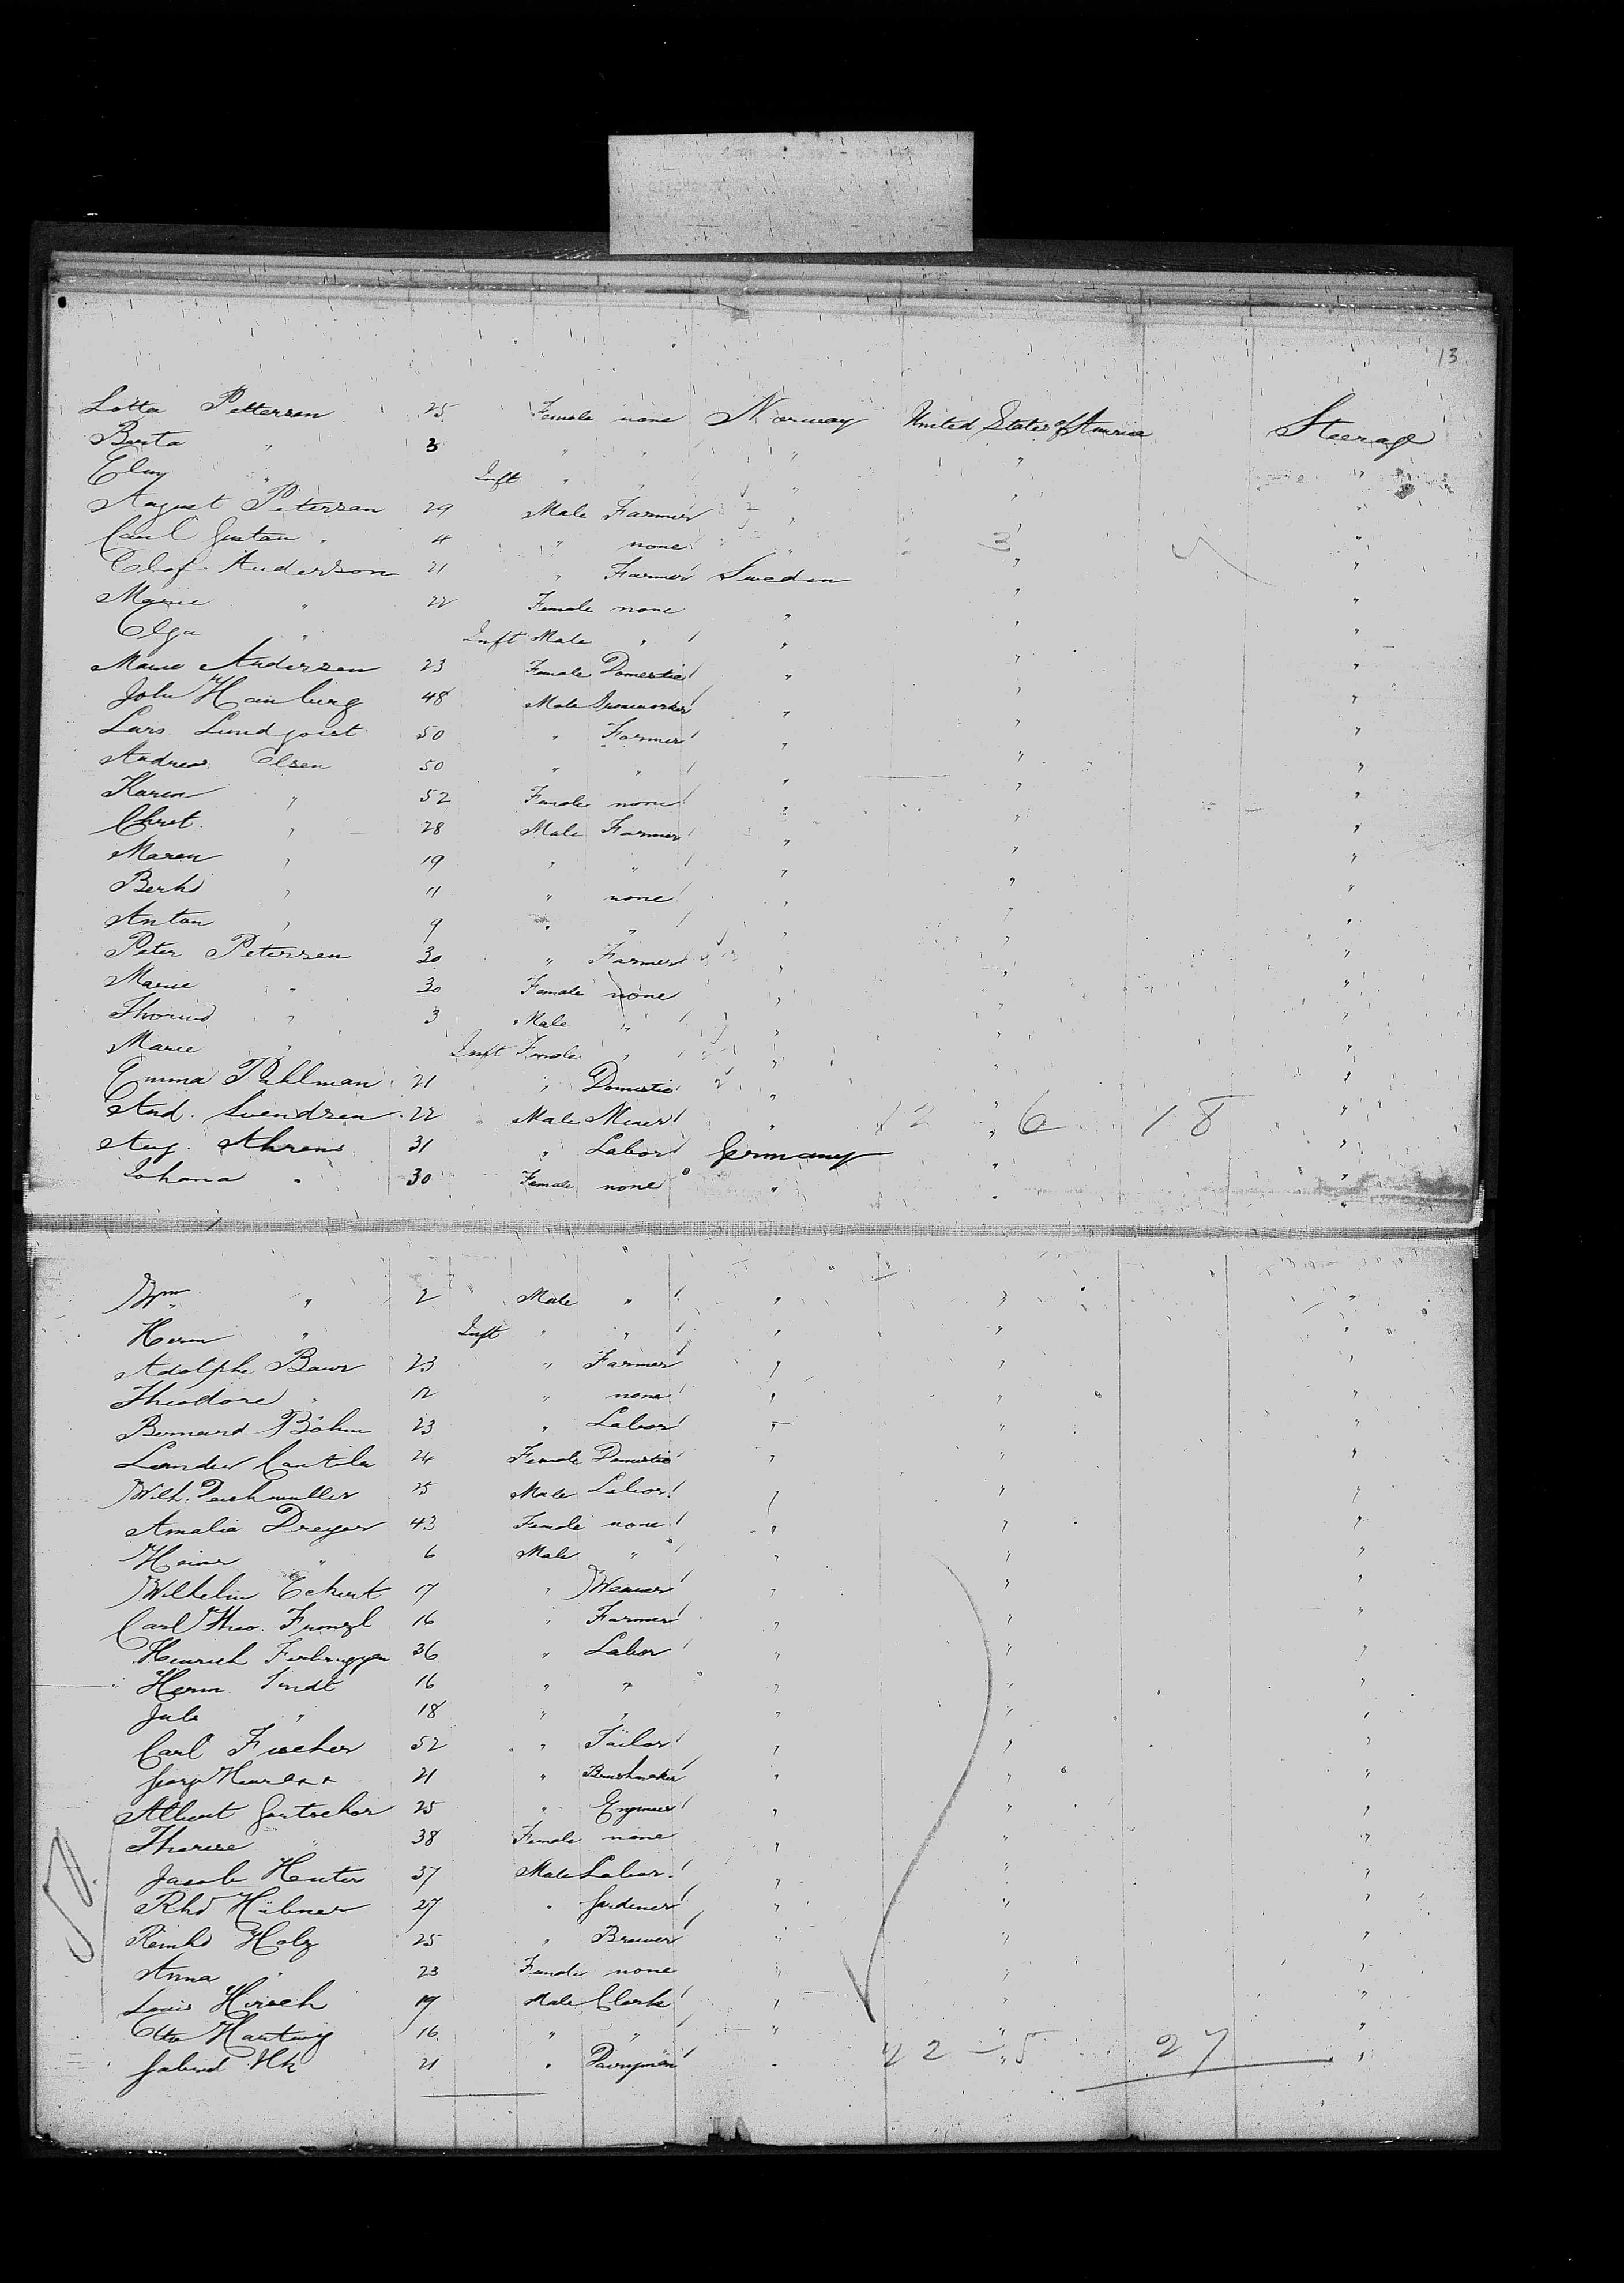 13
Lotta Pettersen 25 Female none Norway United States of America Steerage
Berta " 3 " " " " "
Elny " Inft " " " " "
August Petersen 29 Male Farmer " " "
Carl Gustav " 4 " none " " "
3
Olof Anderson 21 " Farmer Sweden " "
Marie " 22 Female none " " "
Olga " Inft Male " " " "
Marie Andersen 23 Female Domestic " " "
John Hamberg 48 Male Ironworker " " "
Lars Lundqvist 50 " Farmer " " "
Andreas Olsen 50 " " " " "
Karen " 52 Female none " " "
Christ. " 28 Male Farmer " " "
Maren " 19 " " " " "
Berhd " 11 " none " " "
Anton " 9 " " " " "
Peter Petersen 30 " Farmer " " "
Marie " 30 Female none " " "
Thorwd " 3 Male " " " "
Marie " Inft Female " " " "
Emma Puhlman 21 " Domestic " " "
And. Svendsen 22 Male Miner " " "
12 6 18
Aug. Ahrens 31 " Labor Germany " "
Johana " 30 Female none " " "
Wm " 2 Male " " " "
Herm " Inft " " " " "
Adolphe Baur 23 " Farmer " " "
Theodore " 12 " none " " "
Bernard Böhm 23 " Labor " " "
24 Female Domestic " " "
Wilh. Deichmuller 25 Male Labor " " "
Amalia Dreyer 43 Female none " " "
Heinr " 6 Male " " " "
Wilhelm Eckert 17 " Weaver " " "
Carl Theo. Frenzl 16 " Farmer " " "
Heinrich 36 " Labor " " "
Herm 16 " " " " "
Jule " 18 " " " " "
Carl Fischer 52 " Tailor " " "
Georg 21 " Brushmaker " " "
Albert 25 " Engineer " " "
Therese " 38 Female none " " "
Jacob Henter 37 Male Labor " " "
Rhd Hübner 27 " Gardener " " "
Reinhd Holz 25 " Brewer " " "
Anna " 23 Female none " " "
Louis Hirsch 19 Male Clerk " " "
Otto Hartwig 16 " " " " "
21 " Dairyman " " "
22 5 27
50